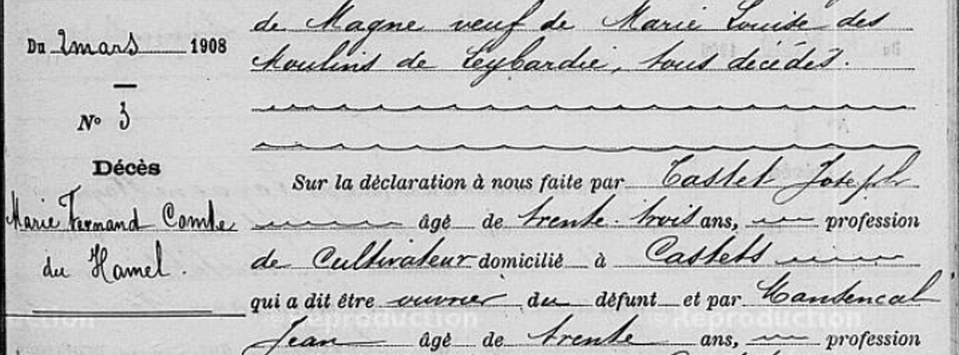 de Magne veuf de Marie Louise des
Moulins de Leybardie, tous décédés.
Du 2 mars 1908
N° 3
Décès
Marie Fernand Comte
du Hamel.
Sur la déclaration à nous faite par Castet Joseph
âgé de trente-trois ans, profession
de Cultivateur domicilié à Castets
qui a dit être ouvrier du défunt et par Mansencal
Jean âgé de trente ans, profession
Reproduction